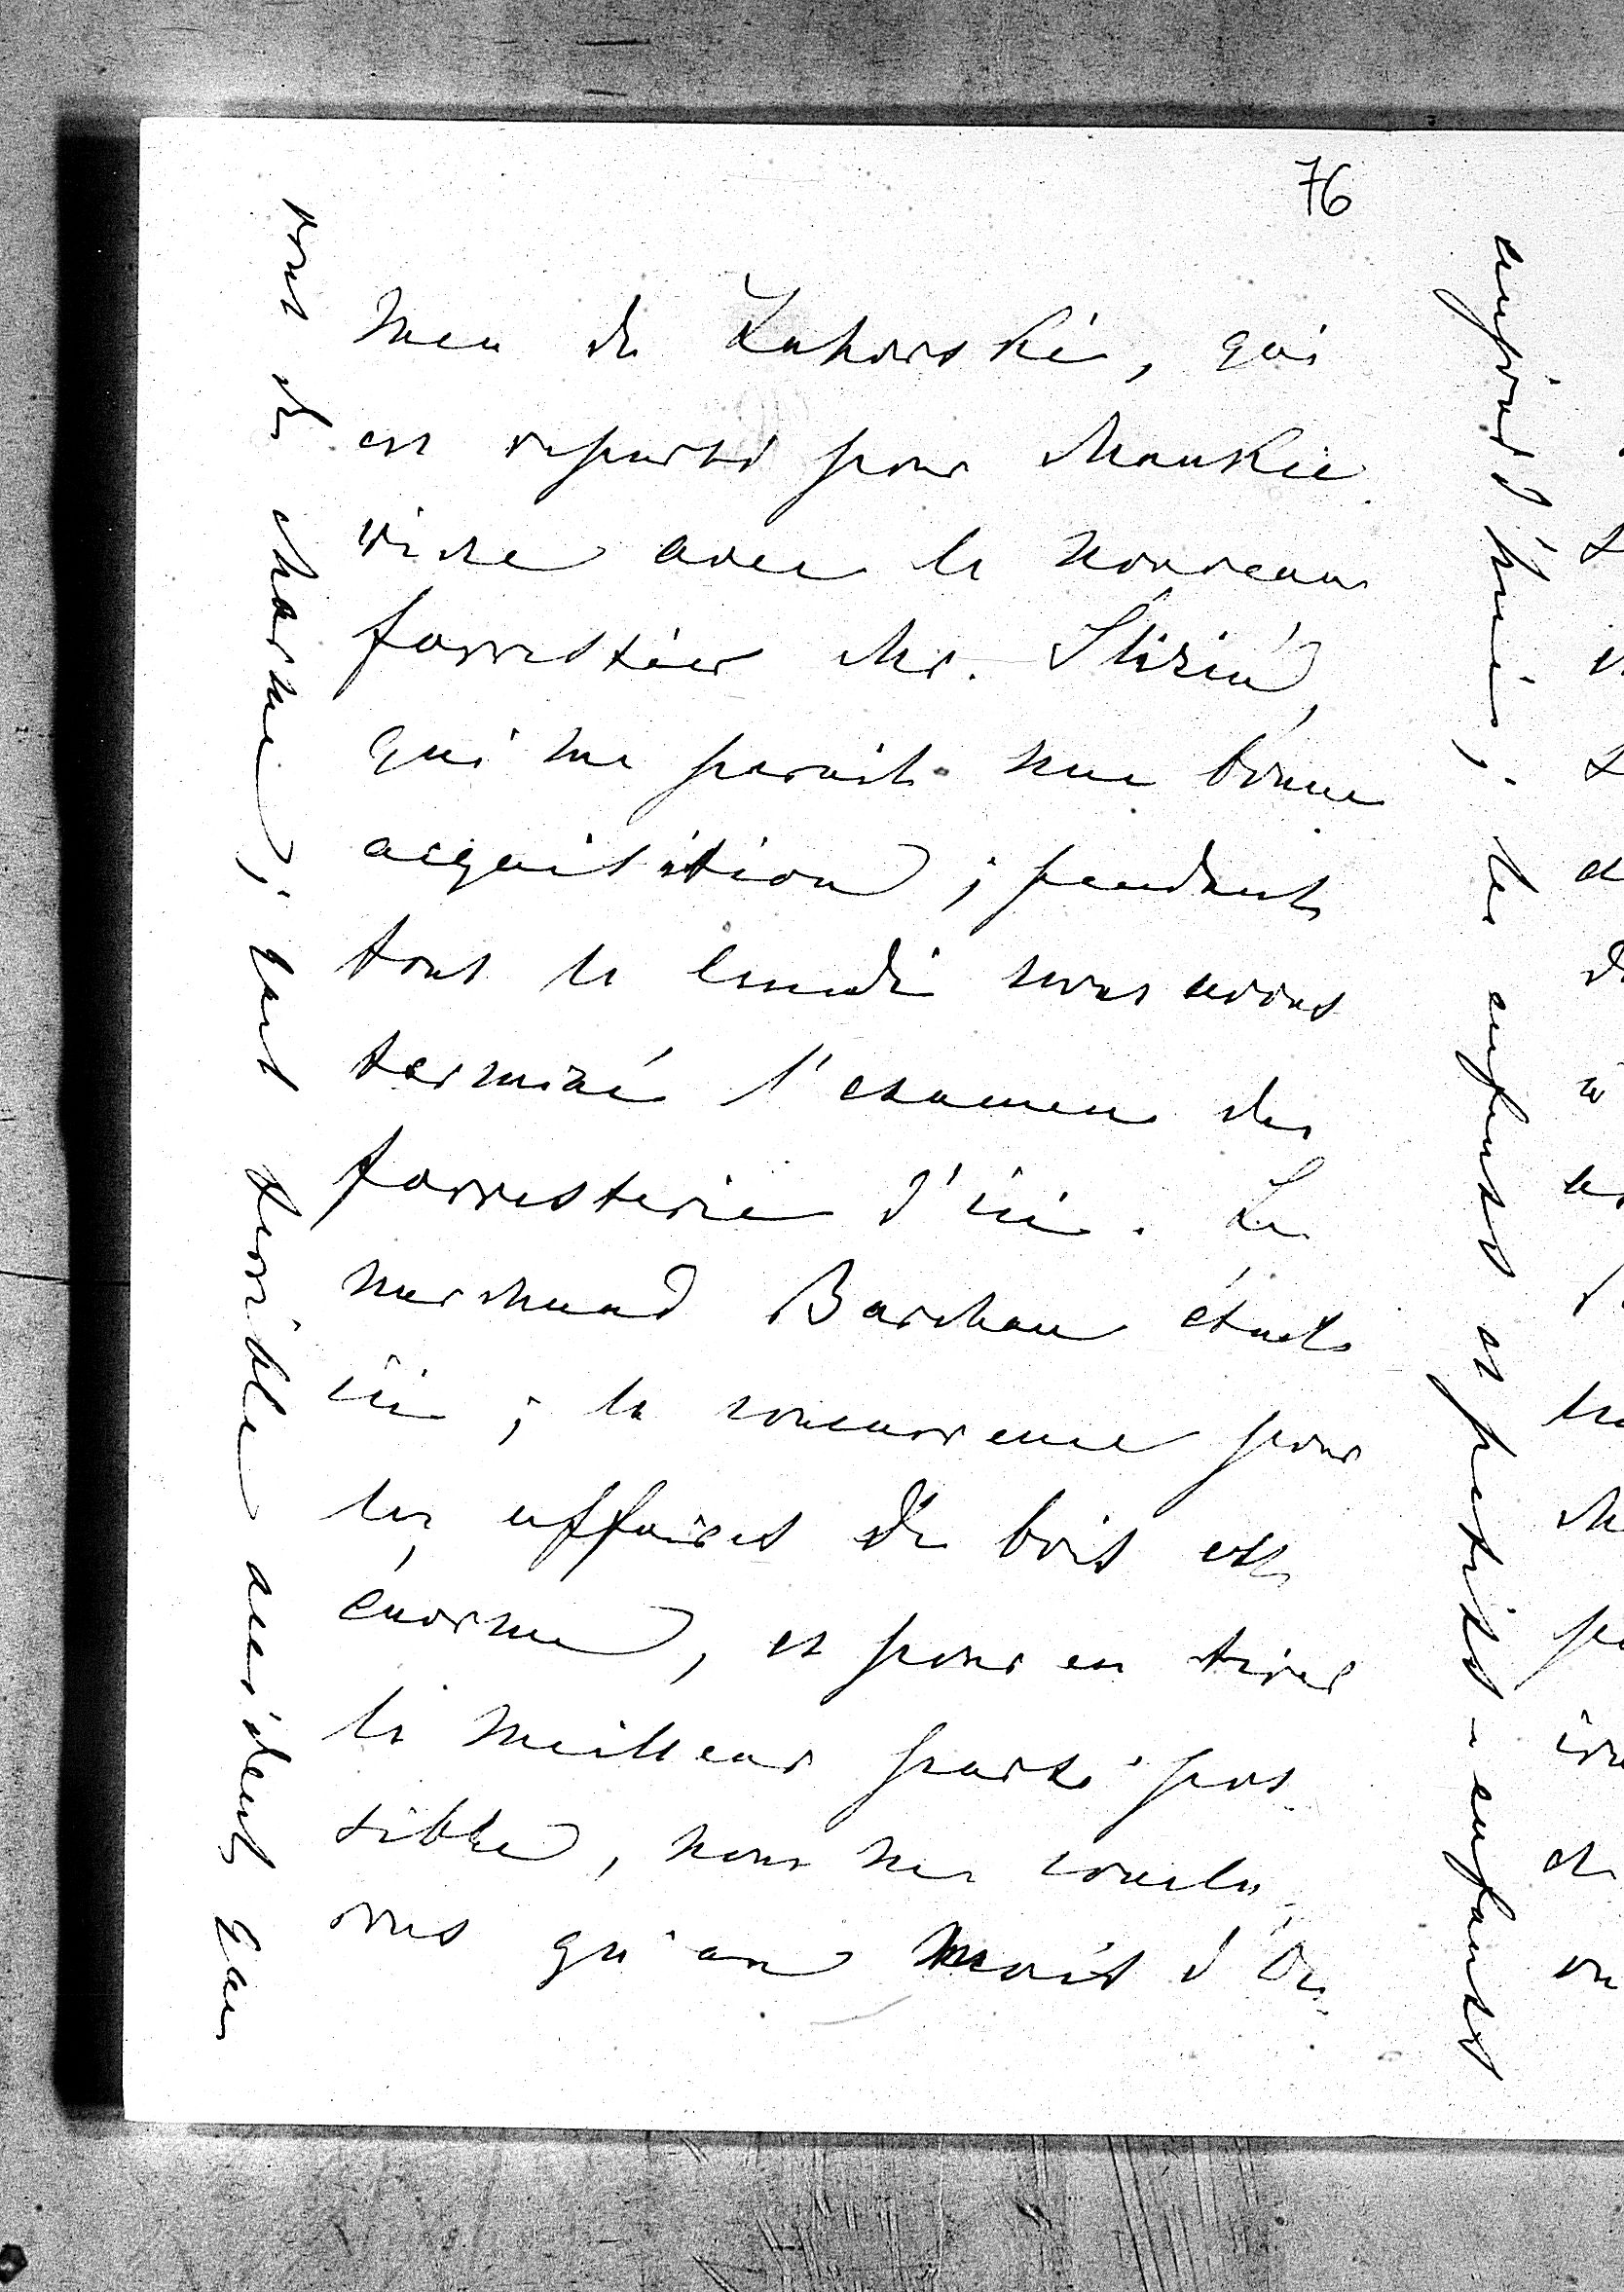 76
men de Kukowski, qui
est reparti pour Mankie
wicze avec le nouveau
forrestier Mr. Slizień,
qui me parait une bonne
acquisition ; pendant
tout le lundi nous avons
terminé l'examen des
forresterie d'ici. Le
marchand Barchan était
ici ; la concurrence pour
les affaires de bois est
énorme, et pour en tirer
le meilleur parti pos
sible, nous ne conclu
rons qu'au mois d'Oc
vont de charme ; quel terrible accident que
aujourd'hui ; les enfants et petits-enfants